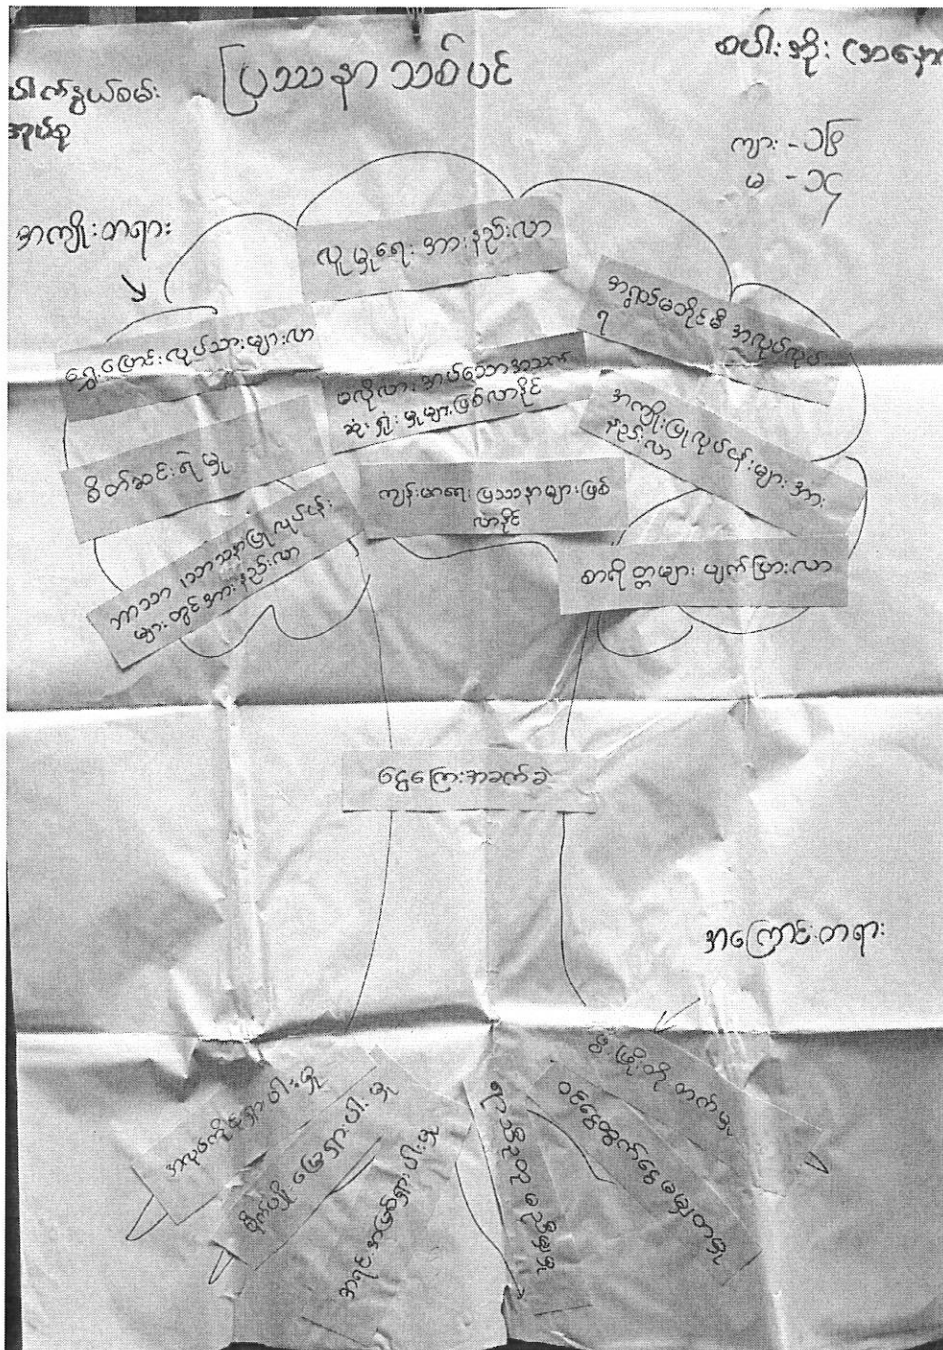 ပြဿနာသစ်ပင်
စပါးအိုး (အနော
ပေါက်နွယ်စမ်း
အုပ်စု
ကျား - ၁၆
မ - ၁၄
အကျိုးတရား
လူမှုရေးအားနည်းလာ
အရွယ်မတိုင်မီ အလုပ်လုပ်
ရ
ရွှေ့ပြောင်းလုပ်သားများလာ
မလိုလားအပ်သောအသက်
ဆုံးရှုံးမှုများဖြစ်လာနိုင်
အကျိုးပြုလုပ်ငန်းများအား
နည်းလာ
စိတ်ဆင်းရဲမှု
ကျန်းမာရေးပြဿနာများဖြစ်
လာနိုင်
ဘာသာ၊ သာသနာပြုလုပ်ငန်း
များတွင်အားနည်းလာ
စာရိတ္တများ ပျက်ပြားလာ
ငွေကြေးအခက်ခဲ
အကြောင်းတရား
အလုပ်အကိုင်ရှားပါးမှု
စိုက်ပျိုးမြေရှားပါးမှု
အရင်းအမြစ်ရှားပါးမှု
ဝင်ငွေထွက်ငွေမမျှတမှု